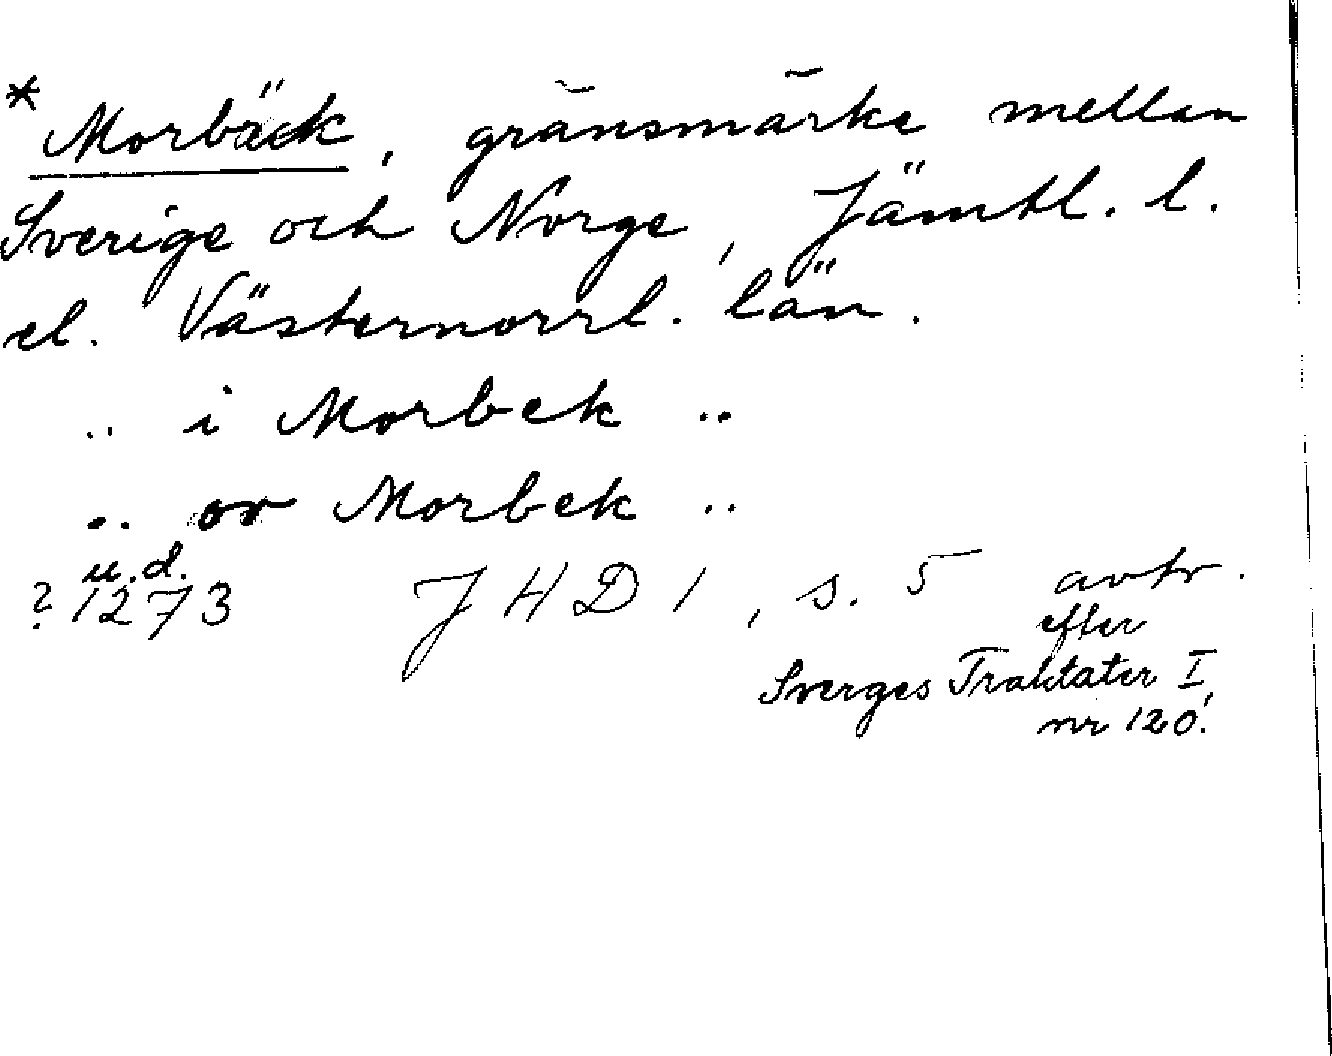 * Morbäck, gränsmärke mellan
Sverige och Norge, Jämtl. l.
el. Västernorrl. län.
.. i Morbek ..
.. or Morbek ..
u.d.
? 1273 JHD 1, s. 5 avtr.
efter
Sverges Traktater I,
nr 120.